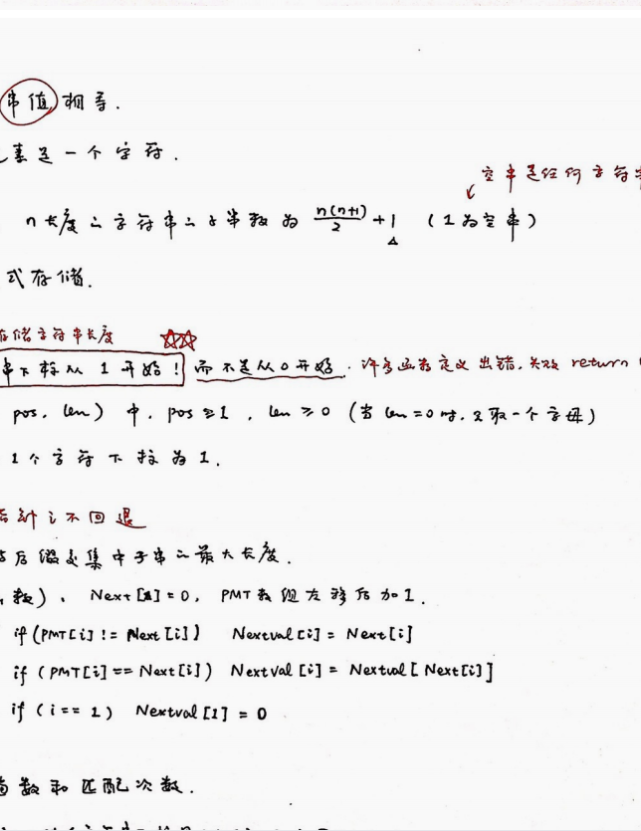 串值相等.
元素是一个字符.
空串是任何字符串
n长度的字符串的子串数为 n(n+1)/2 + 1 (1为空串)
式存储.
存储字符串长度
串下标从 1 开始! 而不是从0开始. 许多函数定义出错, 失败 return
pos, len) 中, pos≥1, len≥0 (当len=0时, 只取一个字母)
1个字符下标为1.
指针i不回退
后缀交集中子串的最大长度.
数), Next[1]=0, PMT数组左移后加1.
if (PMT[i] != Next[i]) Nextval[i] = Next[i]
if (PMT[i] == Next[i]) Nextval[i] = Nextval[Next[i]]
if (i == 1) Nextval[1] = 0
数和匹配次数.